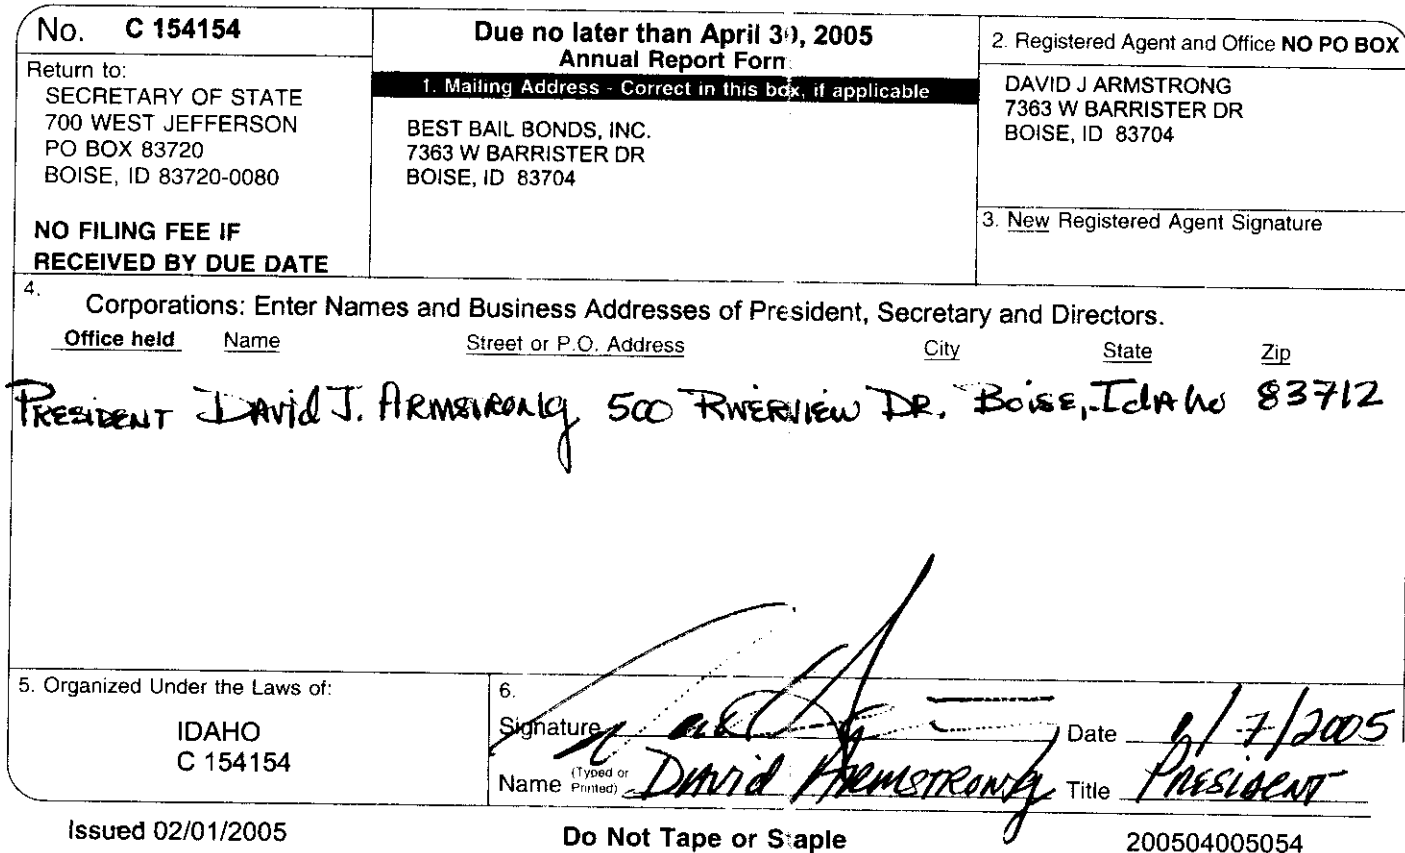 No. C 154154
Return to:
SECRETARY OF STATE
700 WEST JEFFERSON
PO BOX 83720
BOISE, ID 83720-0080
NO FILING FEE IF
RECEIVED BY DUE DATE
Due no later than April 30, 2005
Annual Report Form
1. Mailing Address - Correct in this box, if applicable
BEST BAIL BONDS, INC.
7363 W BARRISTER DR
BOISE, ID 83704
2. Registered Agent and Office NO PO BOX
DAVID J ARMSTRONG
7363 W BARRISTER DR
BOISE, ID 83704
3. New Registered Agent Signature
4.
Corporations: Enter Names and Business Addresses of President, Secretary and Directors.
Office held Name Street or P.O. Address City State Zip
PRESIDENT DAVID J. ARMSTRONG 500 RIVERVIEW DR. BOISE, IDAHO 83712
5. Organized Under the Laws of:
IDAHO
C 154154
6.
Signature Date /7/2005
Name (Typed or Printed) DAVID ARMSTRONG Title PRESIDENT
Issued 02/01/2005
Do Not Tape or Staple
200504005054